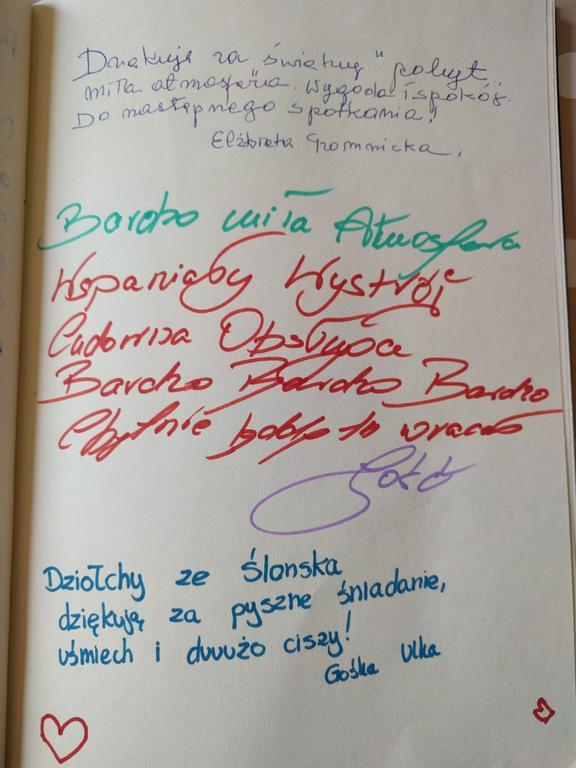 Dziękuję za świetny" pobyt
miła atmosfera. Wygoda i spokój.
Do następnego spotkania!
Elżbieta Gromnicka.
Bardzo miła Atmosfera
Wspaniały Wystrój
Cudowna Obsługa
Bardzo Bardzo Bardzo
Chętnie będę tu wracać
Gość
Dziołchy ze Ślonska
dziękują za pyszne śniadanie,
uśmiech i duuużo ciszy!
Gośka Ulka